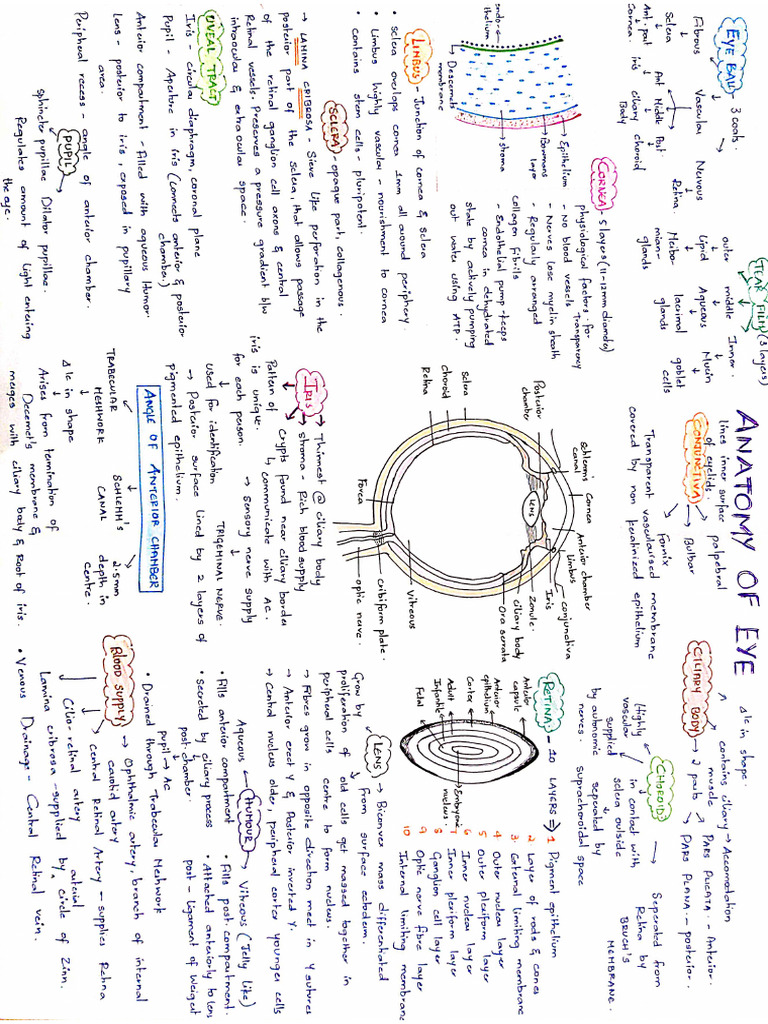 ANATOMY OF EYE
EYE BALL
3 coats.
Fibrous Vascular Nervous
Sclera Ant Middle Post Retina.
Ant. part iris ciliary choroid
Cornea. Body
TEAR FILM (3 layers)
outer middle Inner.
Lipid Aqueous Mucin
Meibo- lacrimal goblet
mian- glands cells
glands
CORNEA - 5 layers (11-12mm diameter)
physiological factors for
Transparency
- No blood vessels
- Nerves lose myelin sheath
- Regularly arranged
collagen fibrils
- Endothelial pump - keeps
cornea in dehydrated
state by actively pumping
out water using ATP.
Epithelium
Bowmans
layer
stroma
endo-
thelium
Descemets
membrane
LIMBUS - Junction of cornea & sclera
• sclera overlaps cornea 1mm all around periphery.
• Limbus highly vascular - nourishment to cornea
• contains stem cells - pluripotent.
SCLERA - opaque part, collagenous.
→ LAMINA CRIBROSA - Sieve like perforation in the
posterior part of the sclera, that allows passage
of the retinal ganglion cell axons & central
Retinal vessels. Preserves a pressure gradient b/w
intraocular & extraocular space.
UVEAL TRACT
Iris - circular diaphragm, coronal plane
Pupil - Aperture in iris (connects anterior & posterior
chamber.)
Anterior compartment - Filled with aqueous Humor
Lens - posterior to iris, exposed in pupillary
area.
Peripheral recess - angle of anterior chamber.
PUPIL
Sphincter pupillae Dilator pupillae.
Regulates amount of light entering
the eye.
CONJUNCTIVA
lines inner surface
of eyelids.
palpebral
Bulbar
Fornix
Transparent vascularised membrane
covered by non keratinized epithelium
Schlemm's
canal
Cornea
Anterior chamber
Limbus
conjunctiva
Iris
Zonule.
ciliary body
Ora serrata
Posterior
chamber
LENS
sclera
choroid
Retina
Vitreous
Fovea
cribiform plate.
optic nerve.
IRIS
→ Thinnest @ ciliary body
→ stroma - Rich blood supply
crypts found near ciliary border
↳ communicate with AC.
Pattern of
iris is unique.
for each person.
↓
used for identification
TRIGEMINAL NERVE.
→ sensory nerve supply
→ Posterior surface lined by 2 layers of
pigmented epithelium.
ANGLE OF ANTERIOR CHAMBER
TRABECULAR SCHLEHH'S 2.5mm
MESHWORK CANAL depth in
centre.
Δle in shape
Arises from termination of
Decemet's membrane &
merges with ciliary body & Root of iris.
CILIARY BODY
Δle in shape.
contains ciliary → Accomotation
muscle
2 parts
PARS PLICATA. - Anterior.
PARS PLANA. - posterior.
CHOROID
Highly
vascular
supplied
by autonomic
nerves.
in contact with
sclera outside
seperated by
suprachoroidal space
Separated from
Retina by
BRUCH'S
MEMBRANE.
RETINA → 10 LAYERS
1 Pigment epithelium
2 Layer of rods & cones
3 External limiting membrane
4 Outer nuclear layer
5 Outer plexiform layer
6 Inner nuclear layer
7 Inner plexiform layer
8 Ganglion cell layer
9 Optic nerve fibre layer
10 Internal limiting membrane
Anterior
capsule
Anterior
epithelium
Cortex
Adult
Infantile
Fetal
Embryonic
nucleus.
LENS → Biconvex mass differentiated
from surface ectoderm.
Grow by
proliferation of old cells get massed together in
peripheral cells centre to form nucleus.
→ Fibres grow in opposite direction meet in Y sutures
→ Anterior erect Y & Posterior inverted Y.
→ Central nucleus older, peripheral cortex younger cells
HUMOUR
Aqueous
• Fills anterior compartment
• secreted by ciliary process
post. chamber.
pupil → AC
• Drained through Trabecular Meshwork
Vitreous (Jelly like)
• Fills post. compartment.
• Attached anteriorly to lens
post - ligament of Weigert
BLOOD SUPPLY
→ Ophthalmic artery, branch of internal
carotid artery
central Retinal Artery - supplies Retina
Cilio-retinal artery
Lamina cribrosa - supplied by arterial circle of Zinn.
• Venous Drainage - Central Retinal vein.